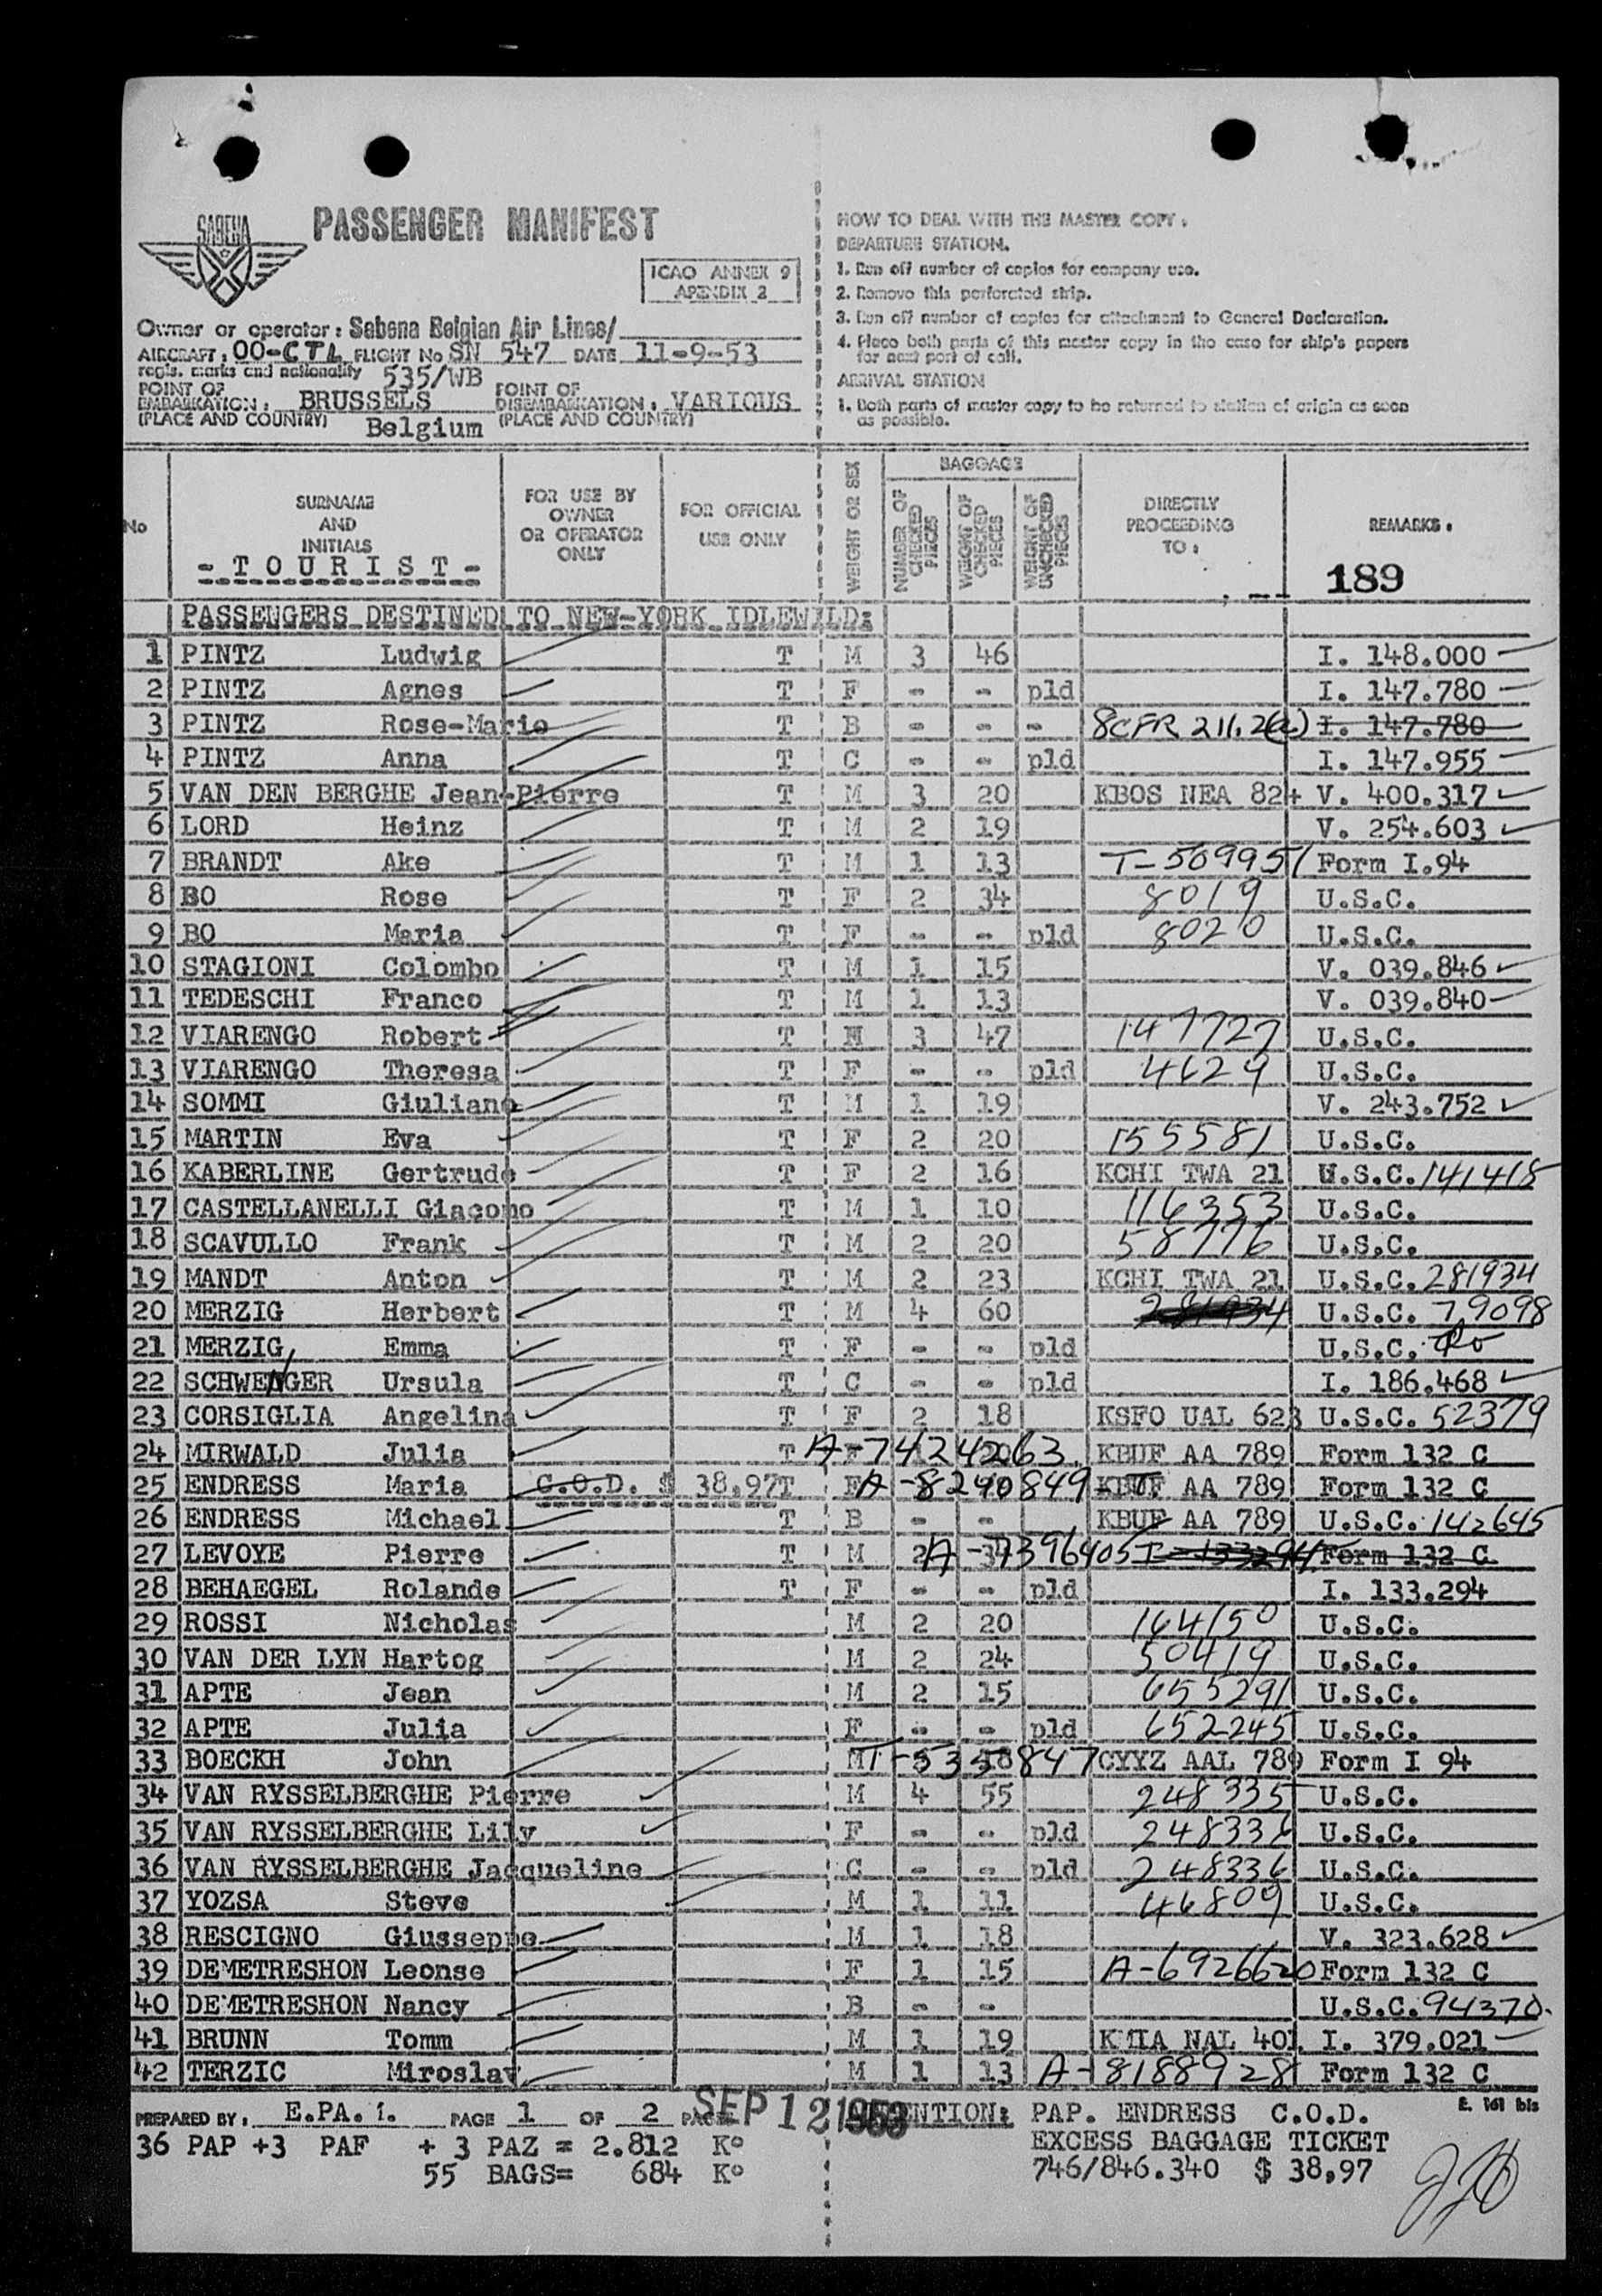 SABENA
PASSENGER MANIFEST
ICAO ANNEX 9
APENDIX 2
Owner or operator: Sabena Belgian Air Lines/
AIRCRAFT: OO-CTL FLIGHT No SN 547 DATE 11-9-53
regis. marks and nationality 535/WB
POINT OF EMBARKATION: BRUSSELS POINT OF DISEMBARKATION: VARIOUS
(PLACE AND COUNTRY) Belgium (PLACE AND COUNTRY)
HOW TO DEAL WITH THE MASTER COPY:
DEPARTURE STATION.
1. Run off number of copies for company use.
2. Remove this perforated strip.
3. Run off number of copies for attachment to General Declaration.
4. Place both parts of this master copy in the case for ship's papers
for next port of call.
ARRIVAL STATION
1. Both parts of master copy to be returned to station of origin as soon
as possible.
No
SURNAME
AND
INITIALS
- T O U R I S T -
FOR USE BY
OWNER
OR OPERATOR
ONLY
FOR OFFICIAL
USE ONLY
WEIGHT OR SEX
BAGGAGE
NUMBER OF CHECKED PIECES
WEIGHT OF CHECKED PIECES
WEIGHT OF UNCHECKED PIECES
DIRECTLY
PROCEEDING
TO:
REMARKS:
189
PASSENGERS DESTINED TO NEW-YORK IDLEWILD:
1 PINTZ Ludwig T M 3 46 I. 148.000
2 PINTZ Agnes T F - - pld I. 147.780
3 PINTZ Rose-Marie T B - - - 8CFR 211.2(a) I. 147.780
4 PINTZ Anna T C - - pld I. 147.955
5 VAN DEN BERGHE Jean-Pierre T M 3 20 KBOS NEA 824 V. 400.317
6 LORD Heinz T M 2 19 V. 254.603
7 BRANDT Ake T M 1 13 T-509951 Form I.94
8 BO Rose T F 2 34 8019 U.S.C.
9 BO Maria T F - - pld 8020 U.S.C.
10 STAGIONI Colombo T M 1 15 V. 039.846
11 TEDESCHI Franco T M 1 13 V. 039.840
12 VIARENGO Robert T M 3 47 147727 U.S.C.
13 VIARENGO Theresa T F - - pld 4629 U.S.C.
14 SOMMI Giuliano T M 1 19 V. 243.752
15 MARTIN Eva T F 2 20 155581 U.S.C.
16 KABERLINE Gertrude T F 2 16 KCHI TWA 21 U.S.C. 141418
17 CASTELLANELLI Giacomo T M 1 10 116353 U.S.C.
18 SCAVULLO Frank T M 2 20 58776 U.S.C.
19 MANDT Anton T M 2 23 KCHI TWA 21 U.S.C. 281934
20 MERZIG Herbert T M 4 60 281934 U.S.C. 79098
21 MERZIG Emma T F - - pld U.S.C. do
22 SCHWENGER Ursula T C - - pld I. 186.468
23 CORSIGLIA Angelina T F 2 18 KSFO UAL 623 U.S.C. 52379
24 MIRWALD Julia T A-7424263 KBUF AA 789 Form 132 C
25 ENDRESS Maria C.O.D. $ 38.97 T F A-8290849 KBUF AA 789 Form 132 C
26 ENDRESS Michael T B - - KBUF AA 789 U.S.C. 142645
27 LEVOYE Pierre T M 2 A-7396405 I-133294 Form 132 C
28 BEHAEGEL Rolande T F - - pld I. 133.294
29 ROSSI Nicholas M 2 20 164150 U.S.C.
30 VAN DER LYN Hartog M 2 24 50419 U.S.C.
31 APTE Jean M 2 15 655291 U.S.C.
32 APTE Julia F - - pld 652245 U.S.C.
33 BOECKH John M T-5358847 CYYZ AAL 789 Form I 94
34 VAN RYSSELBERGHE Pierre M 4 55 248335 U.S.C.
35 VAN RYSSELBERGHE Lily F - - pld 248336 U.S.C.
36 VAN RYSSELBERGHE Jacqueline C - - pld 248336 U.S.C.
37 YOZSA Steve M 1 11 46809 U.S.C.
38 RESCIGNO Giusseppe M 1 18 V. 323.628
39 DEMETRESHON Leonse F 1 15 A-6926620 Form 132 C
40 DEMETRESHON Nancy B - - U.S.C. 94370.
41 BRUNN Tomm M 1 19 KMIA NAL 401 I. 379.021
42 TERZIC Miroslav M 1 13 A-8188928 Form 132 C
PREPARED BY: E.PA. 1. PAGE 1 OF 2 PAGES SEP 12 1953 ATTENTION: PAP. ENDRESS C.O.D. E. 161 bis
36 PAP +3 PAF + 3 PAZ = 2.812 K° EXCESS BAGGAGE TICKET
55 BAGS= 684 K° 746/846.340 $ 38,97